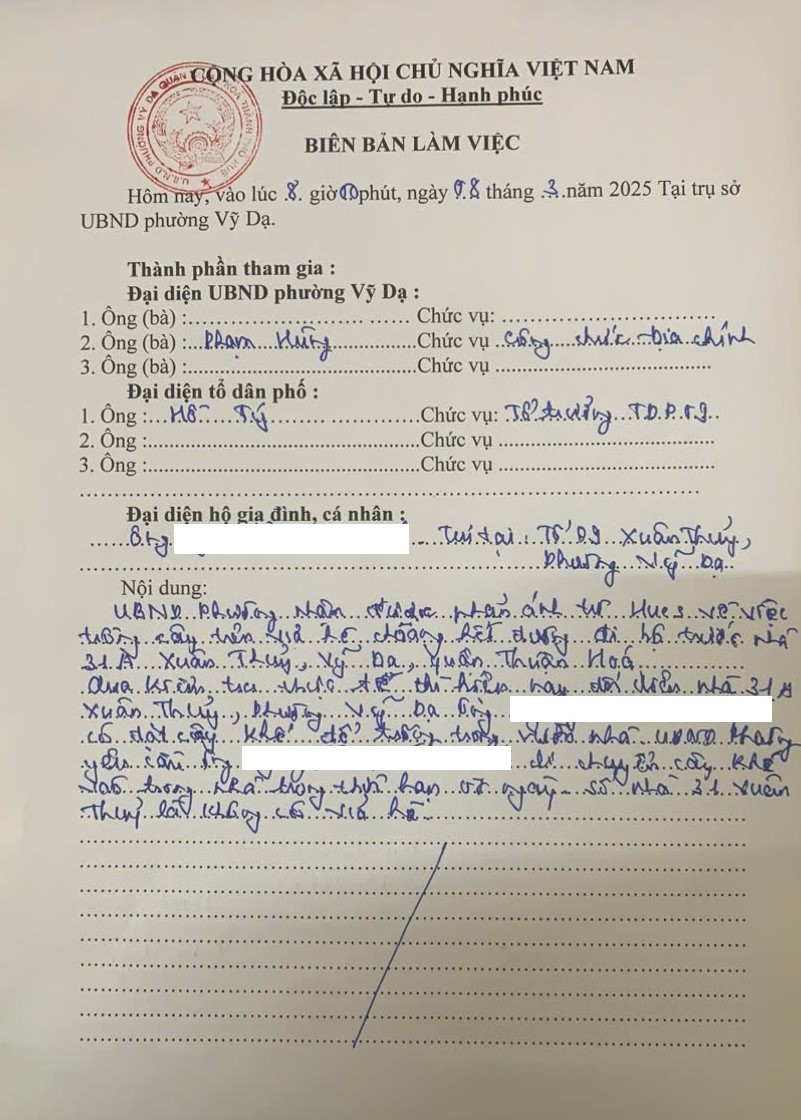 CỘNG HÒA XÃ HỘI CHỦ NGHĨA VIỆT NAM
Độc lập - Tự do - Hạnh phúc
BIÊN BẢN LÀM VIỆC
Hôm nay, vào lúc 8 giờ 00 phút, ngày tháng 3 năm 2025 Tại trụ sở
UBND phường Vỹ Dạ.
Thành phần tham gia :
Đại diện UBND phường Vỹ Dạ :
1. Ông (bà) :........................ Chức vụ: ........................
2. Ông (bà) : Phạm Hùng Chức vụ Công chức Địa chính
3. Ông (bà) :........................ Chức vụ ........................
Đại diện tổ dân phố :
1. Ông : Hồ Tý Chức vụ: Tổ trưởng T.D.P.
2. Ông :........................ Chức vụ ........................
3. Ông :........................ Chức vụ ........................
Đại diện hộ gia đình, cá nhân :
Ông Trú tại : Tổ Xuân Thủy,
Phường Vỹ Dạ
Nội dung:
UBND Phường nhận được phản ánh từ Hues về việc
trồng cây trên vỉa hè choáng hết đường đi bộ trước nhà
31A Xuân Thủy, Vỹ Dạ, Quận Thuận Hoá
Qua kiểm tra thực tế thì hiện nay đối diện nhà 31A
Xuân Thủy, Phường Vỹ Dạ Ông
có đặt cây khế để trồng trong vườn nhà UBND Phường
yêu cầu Ông di chuyển cây khế
vào trong nhà trong thời hạn 07 ngày - số nhà 31 Xuân
Thủy là không có vỉa hè.